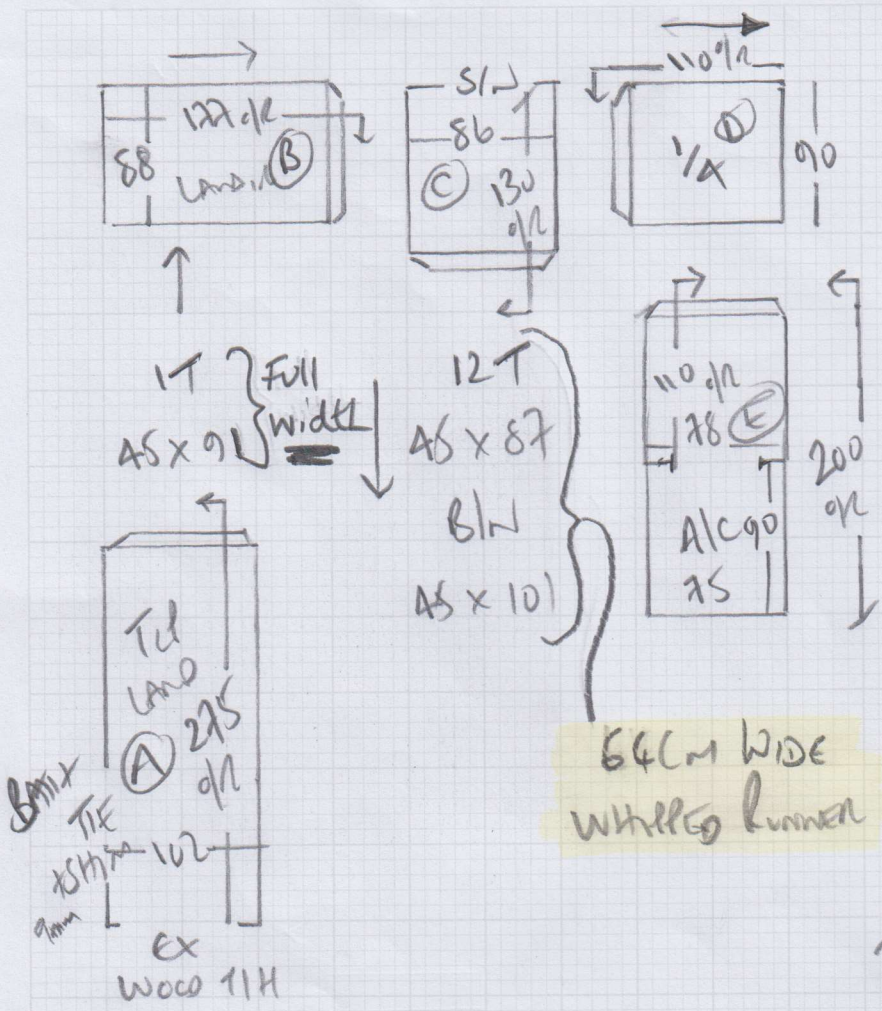 177 o/R
88
LANDIN
B
S/N
86
C
130
o/R
110 o/R
D
1/4
90
1T
45 x 91
FULL
WIDTH
12T
45 x 87
B/N
45 x 101
110 o/R
78
E
200
o/R
A/C 90
75
LAND
A
275
o/R
102
9mm
EX
WOOD T/H
64CM WIDE
WHIPPED RUNNER